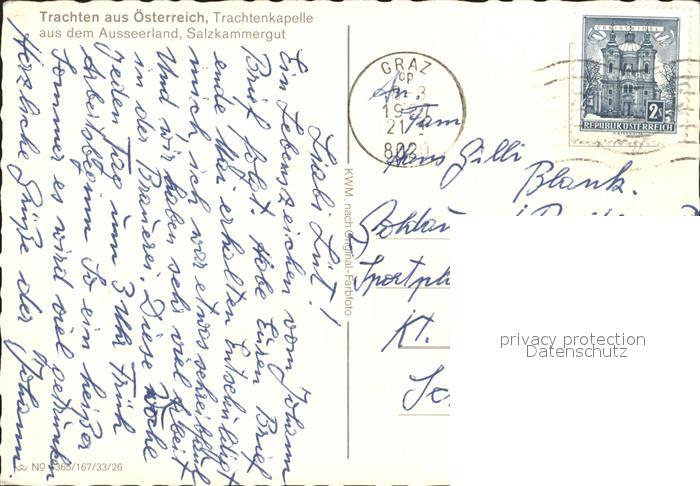 Trachten aus Österreich, Trachtenkapelle
aus dem Ausseerland, Salzkammergut
Liebe Leut!
Ein Lebenszeichen vom Johann
Brief folgt Habe Euren Brief
ende Mai erhalten Entschuldigt
mich ich war etwas schreibfaul
Und wir haben sehr viel Arbeit
in der Brauerei. Diese Woche
jeden Tag um 3 Uhr Früh
Arbeitsbeginn So ein heißer
Sommer es wird viel getrunken
Herzliche Grüße der Johann.
KWM, nach Original-Farbfoto
No 365/167/33/26
GRAZ
CP
21
8020
REPUBLIK ÖSTERREICH
2
An
Fam
Hans Gilli
Blank.
Sportpl
Kt.
privacy protection
Datenschutz